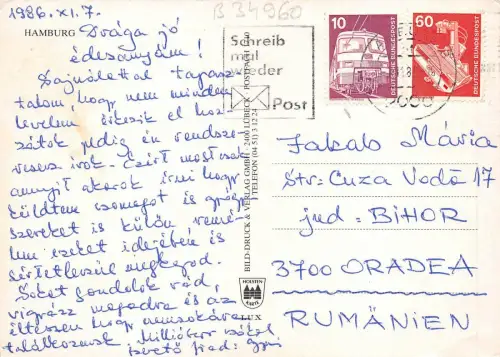 1986. XI. 7.
B 34960
HAMBURG
Drága jó
édesanyám!
Sajnálattal tapasz-
talom, hogy nem minden
levelem érkezik el hoz-
zátok pedig én rendsze-
resen írok. Ezért most csak
annyit akarok írni hogy
küldtem csomagot is gyógy-
szereket is külön remé-
lem ezeket idejében és
sértetlenül megkapod.
Sokat gondolok rád,
vigyázz magadra és az
éltessen hogy nemsokára
találkozunk. Milliószor csókol
szerető fiad:
Schreib
mal
wieder
Post
10
DEUTSCHE BUNDESPOST
60
DEUTSCHE BUNDESPOST
BILD-DRUCK & VERLAG GMBH · 2400 LÜBECK · POSTFACH
TELEFON (04 51) 3 12 24
HOLSTEN
KARTE
LUX
Jakab Mária
Str: Cuza Vodă 17
jud: BIHOR
3700 ORADEA
RUMÄNIEN